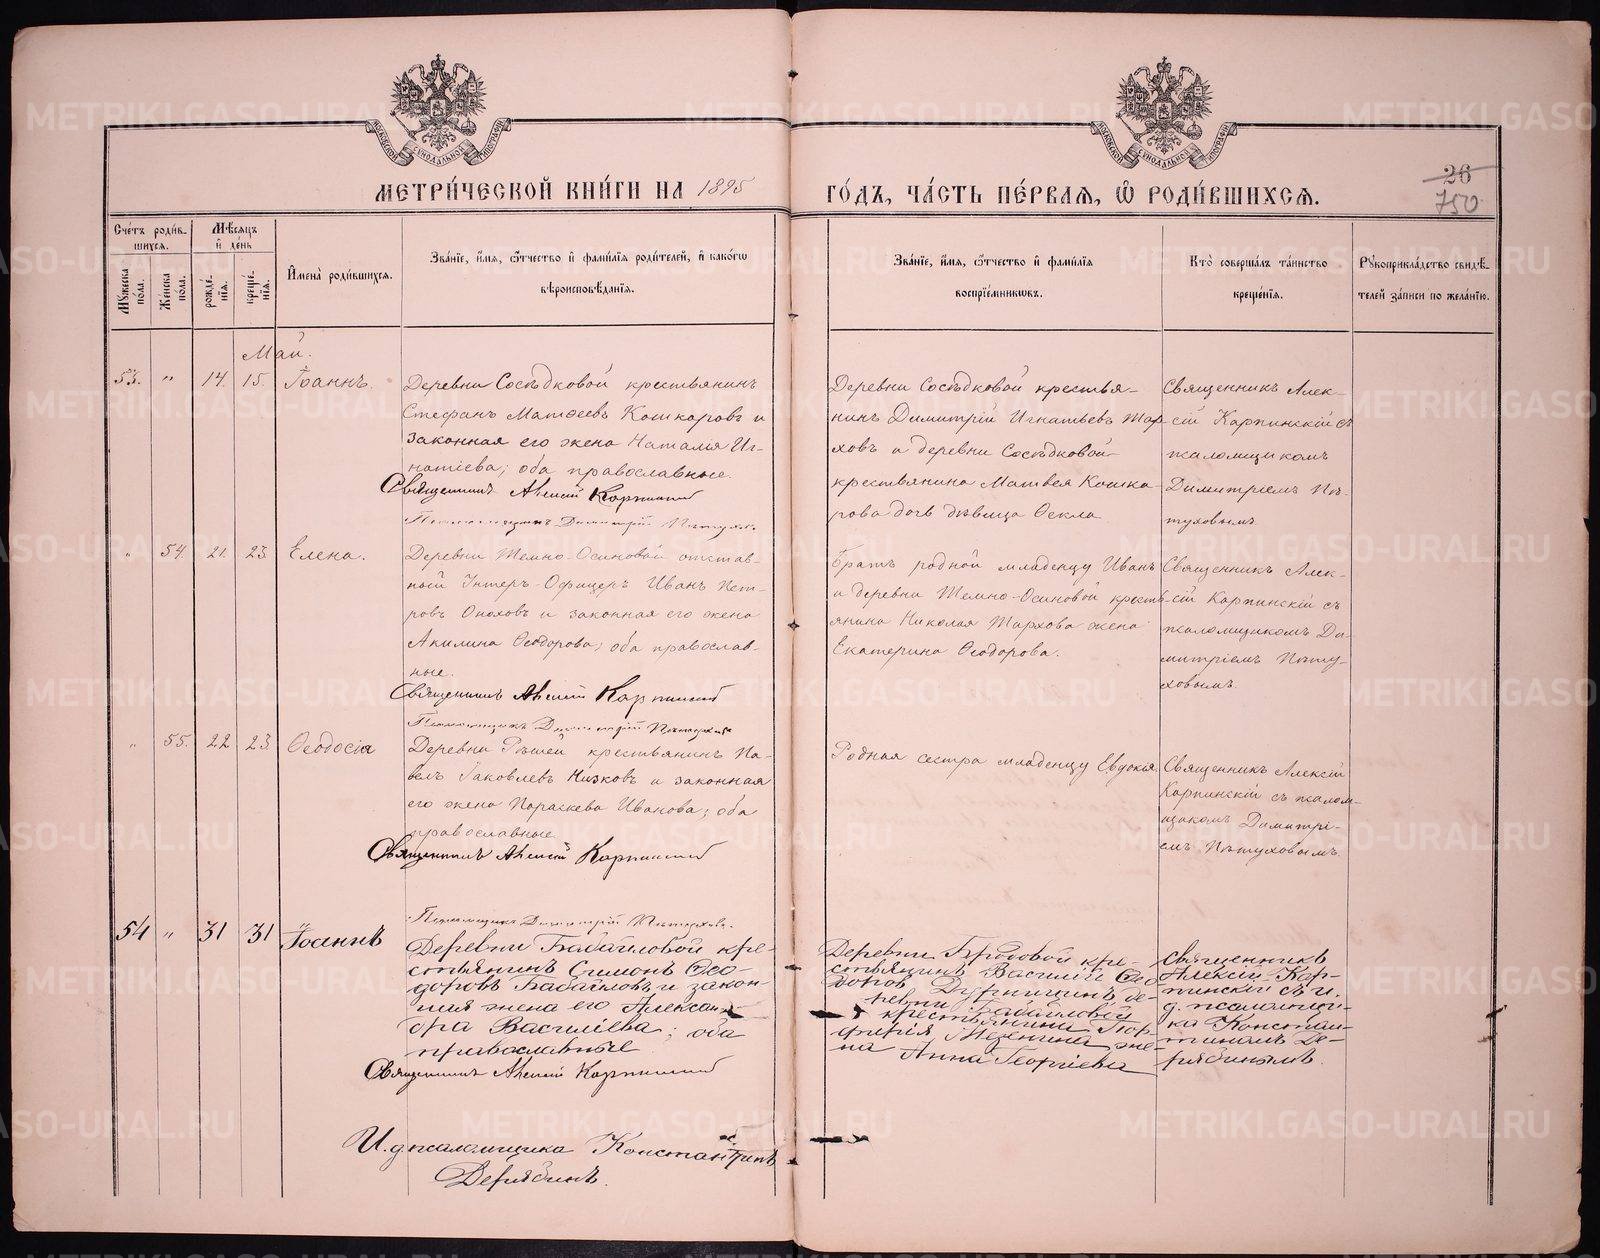 МЕТРИ́ЧЕСКОЙ КНИ́ГИ НА 1895
ГО́ДЪ, ЧА́СТЬ ПЕ́РВАЯ, Ѽ РОДИ́ВШИХСЯ.
26
750
Сче́тъ роди́в-
шихся.
Мѣ́сяцъ
и҆ де́нь
Му́жеска по́ла.
Же́нска по́ла.
рожде́нїя.
креще́нїя.
И҆мена̀ роди́вшихся.
Зва́нїе, и҆́мя, ѻ҆́тчество и҆ фами́лїя роди́телей, и҆ како́гѡ
вѣроисповѣ́данїя.
Зва́нїе, и҆́мя, ѻ҆́тчество и҆ фами́лїя
воспрїе́мникѡвъ.
Кто̀ соверша́лъ та́инство
креще́нїя.
Рꙋкоприкла́дство свидѣ́-
телей за́писи по жела́нїю.
Май.
53. " 14. 15. Іоаннъ.
Деревни Сосѣдковой крестьянинъ
Стефанъ Матѳеевъ Кошкаровъ и
законная его жена Наталья Иг-
натіева; оба православные.
Священникъ Алексій Карпинскій
Псаломщикъ Димитрій Пѣтухов.
Деревни Сосѣдковой крестья-
нинъ Димитрій Игнатьевъ Жар-
ховъ и деревни Сосѣдковой
крестьянина Матвея Кошка-
рова дочь дѣвица Ѳекла
Священникъ Алек-
сій Карпинскій съ
псаломщикомъ
Димитріемъ Пѣ-
туховымъ.
" 54. 21. 23 Елена.
Деревни Темно-Осиновой отстав-
ный Унтеръ-Офицеръ Иванъ Пет-
ровъ Опоховъ и законная его жена
Акилина Ѳеодорова; оба православ-
ные.
Священникъ Алексій Карпинскій
Псаломщикъ Димитрій Пѣтуховъ
Братъ родной младенцу Иванъ
и деревни Темно-Осиновой кресть-
янина Николая Жархова жена
Екатерина Ѳеодорова.
Священникъ Алек-
сій Карпинскій съ
псаломщикомъ Ди-
митріемъ Пѣту-
ховымъ.
" 55. 22 23 Ѳеодосія
Деревни крестьянинъ Па-
велъ Іаковлевъ Низковъ и законная
его жена Параскева Иванова; оба
православные.
Священникъ Алексій Карпинскій
Псаломщикъ Димитрій Пѣтуховъ.
Родная сестра младенцу Евдокія.
Священникъ Алексій
Карпинскій съ псалом-
щикомъ Димитрі-
емъ Пѣтуховымъ.
54 " 31 31 Іоаннъ
Деревни Бабаиловой кре-
стьянинъ Симонъ Ѳео-
доровъ Бабаиловъ и закон-
ная жена его Алексан-
дра Василіева; оба
православные
Священникъ Алексій Карпинскій
И. д. псаломщика Константинъ
Дерябинъ.
Деревни Бродовой кре-
стьянинъ Василій Ѳео-
доровъ де-
ревни Бабаиловой
крестьянина Пор-
фирія же-
на Анна Георгіева
священникъ
Алексій Кар-
пинскій съ и.
д. псаломщи-
ка Констан-
тиномъ Де-
рябинымъ.
МОСКОВСКОЙ СѴНОДАЛЬНОЙ ТИПОГРАФІИ
МОСКОВСКОЙ СѴНОДАЛЬНОЙ ТИПОГРАФІИ
METRIKI.GASO-URAL.RU